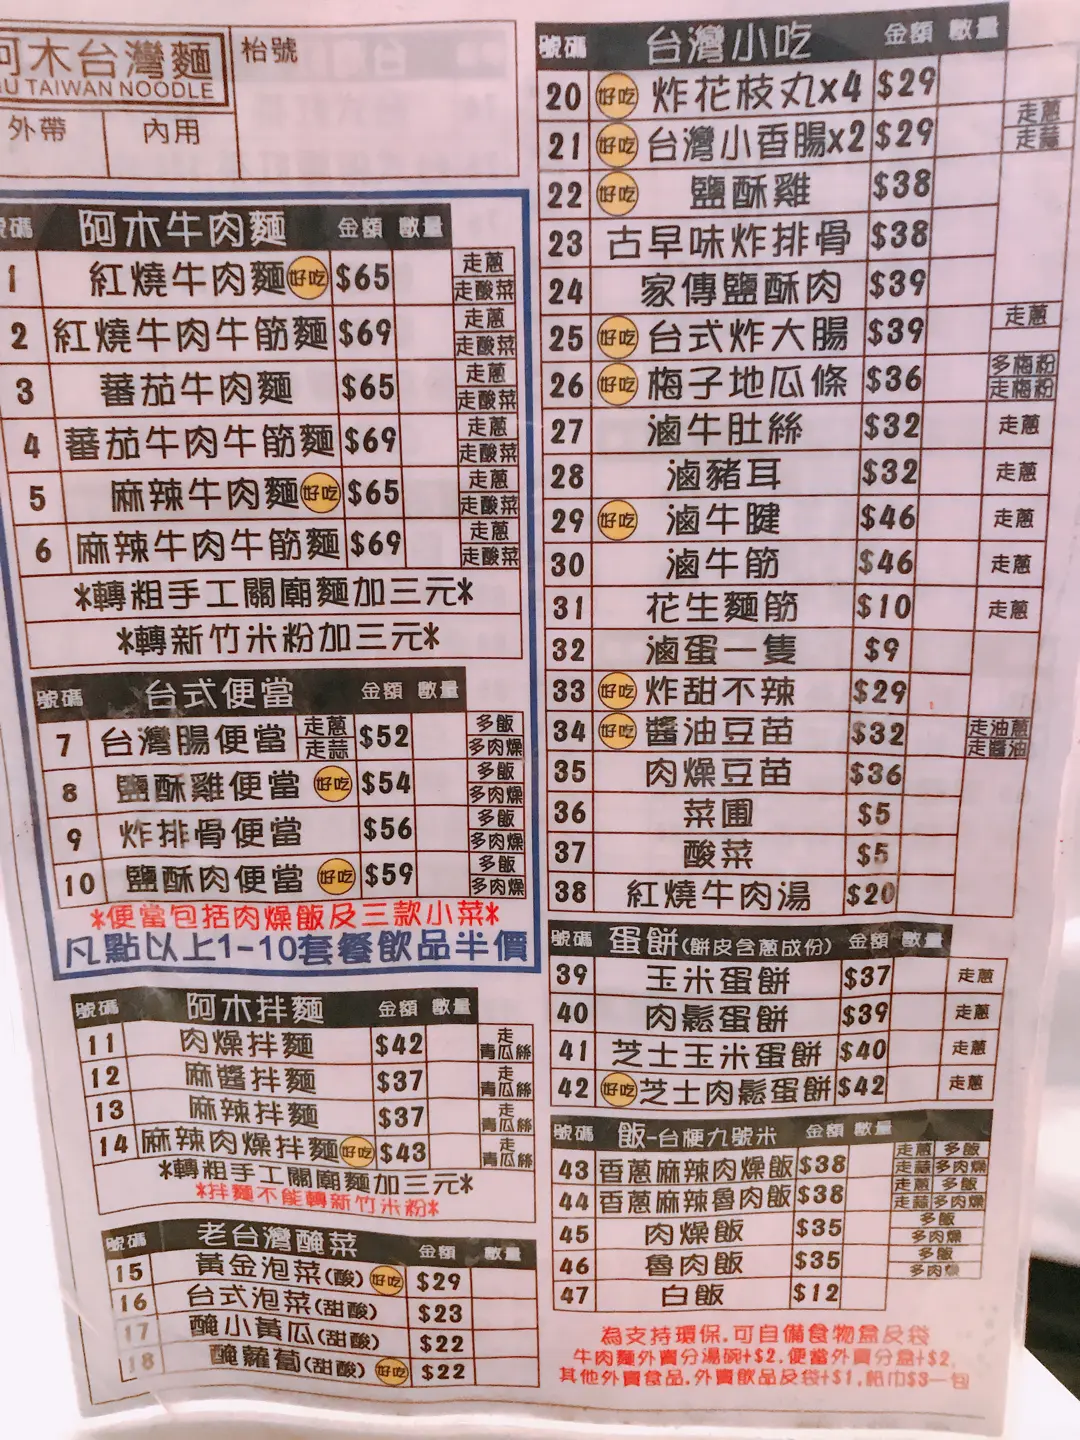 阿木台灣麵
U TAIWAN NOODLE
枱號
外帶 內用
號碼 阿木牛肉麵 金額 數量
1 紅燒牛肉麵 好吃 $65 走蔥 走酸菜
2 紅燒牛肉牛筋麵 $69 走蔥 走酸菜
3 蕃茄牛肉麵 $65 走蔥 走酸菜
4 蕃茄牛肉牛筋麵 $69 走蔥 走酸菜
5 麻辣牛肉麵 好吃 $65 走蔥 走酸菜
6 麻辣牛肉牛筋麵 $69 走蔥 走酸菜
*轉粗手工關廟麵加三元*
*轉新竹米粉加三元*
號碼 台式便當 金額 數量
7 台灣腸便當 走蔥 走蒜 $52 多飯 多肉燥
8 鹽酥雞便當 好吃 $54 多飯 多肉燥
9 炸排骨便當 $56 多飯 多肉燥
10 鹽酥肉便當 好吃 $59 多飯 多肉燥
*便當包括肉燥飯及三款小菜*
凡點以上1-10套餐飲品半價
號碼 阿木拌麵 金額 數量
11 肉燥拌麵 $42 走青瓜絲
12 麻醬拌麵 $37 走青瓜絲
13 麻辣拌麵 $37 走青瓜絲
14 麻辣肉燥拌麵 好吃 $43 走青瓜絲
*轉粗手工關廟麵加三元*
*拌麵不能轉新竹米粉*
號碼 老台灣醃菜 金額 數量
15 黃金泡菜(酸) 好吃 $29
16 台式泡菜(甜酸) $23
17 醃小黃瓜(甜酸) $22
18 醃蘿蔔(甜酸) 好吃 $22
號碼 台灣小吃 金額 數量
20 好吃 炸花枝丸x4 $29
21 好吃 台灣小香腸x2 $29 走蔥 走蒜
22 好吃 鹽酥雞 $38
23 古早味炸排骨 $38
24 家傳鹽酥肉 $39
25 好吃 台式炸大腸 $39 走蔥
26 好吃 梅子地瓜條 $36 多梅粉 走梅粉
27 滷牛肚絲 $32 走蔥
28 滷豬耳 $32 走蔥
29 好吃 滷牛腱 $46 走蔥
30 滷牛筋 $46 走蔥
31 花生麵筋 $10 走蔥
32 滷蛋一隻 $9
33 好吃 炸甜不辣 $29
34 好吃 醬油豆苗 $32 走油蔥 走醬油
35 肉燥豆苗 $36
36 菜圃 $5
37 酸菜 $5
38 紅燒牛肉湯 $20
號碼 蛋餅(餅皮含蔥成份) 金額 數量
39 玉米蛋餅 $37 走蔥
40 肉鬆蛋餅 $39 走蔥
41 芝士玉米蛋餅 $40 走蔥
42 好吃 芝士肉鬆蛋餅 $42 走蔥
號碼 飯-台梗九號米 金額 數量
43 香蔥麻辣肉燥飯 $38 走蔥 多飯 走蒜 多肉燥
44 香蔥麻辣魯肉飯 $38 走蔥 多飯 走蒜 多肉燥
45 肉燥飯 $35 多飯 多肉燥
46 魯肉飯 $35 多飯 多肉燥
47 白飯 $12
為支持環保.可自備食物盒及袋
牛肉麵外賣分湯碗+$2.便當外賣分盒+$2.
其他外賣食品.外賣飲品及袋+$1.紙巾$3一包